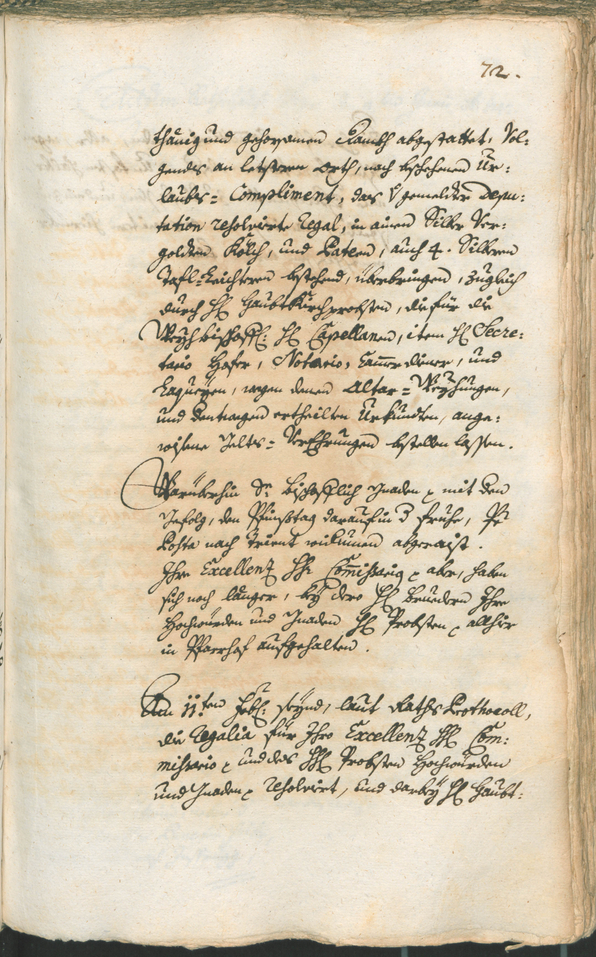 72.
thänig und gehorsamen Dankh abgestattet, Vol-
gendts an letsteren Orth, nach beschehenen Ur-
laubs= Compliment, das gemelder Depu-
tation resolvierte Regal, in ainen Silber Ver-
goldten Kölch, und Pateen, auch 4. Silberen
Tafl-Leichteren bestehend, überbringen, Zugleich
durch H: Haubtkirchprobsten, die für die
Weychbischoffl: H: Capellanen, item H: Secre-
tario Hofer, Notario, Camerdiener, und
Laqueyen, wegen denen Altar=Weychungen,
und dentwegen ertheilten Urkundten, ange-
wisene Gelts= Verehrungen bestellen lassen.
Warüberhin Sr. Bischofflich Gnaden mit dem
Gefolg, den Pfinstag darauf in d frühe, Per
Poshta nach Trient widerumen abgeraist.
Ihro Excellenz H: Commissario aber, haben
sich noch länger, bey dero H: Bruedern Ihro
Hochwürden und Gnaden H: Probsten allhier
in Pfarrhof aufgehalten.
Den 11:ten seynd, laut Raths Prothocoll,
die Regalia für Ihro Excellenz H: Com-
missario und des H: Probsten Hochwürden
und Gnaden resolviert, und darbey H: Haubt-